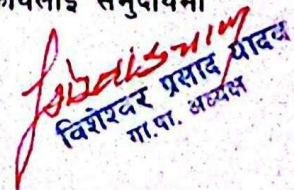 समुदायमा
विशेश्वर प्रसाद यादव
गा.पा. अध्यक्ष